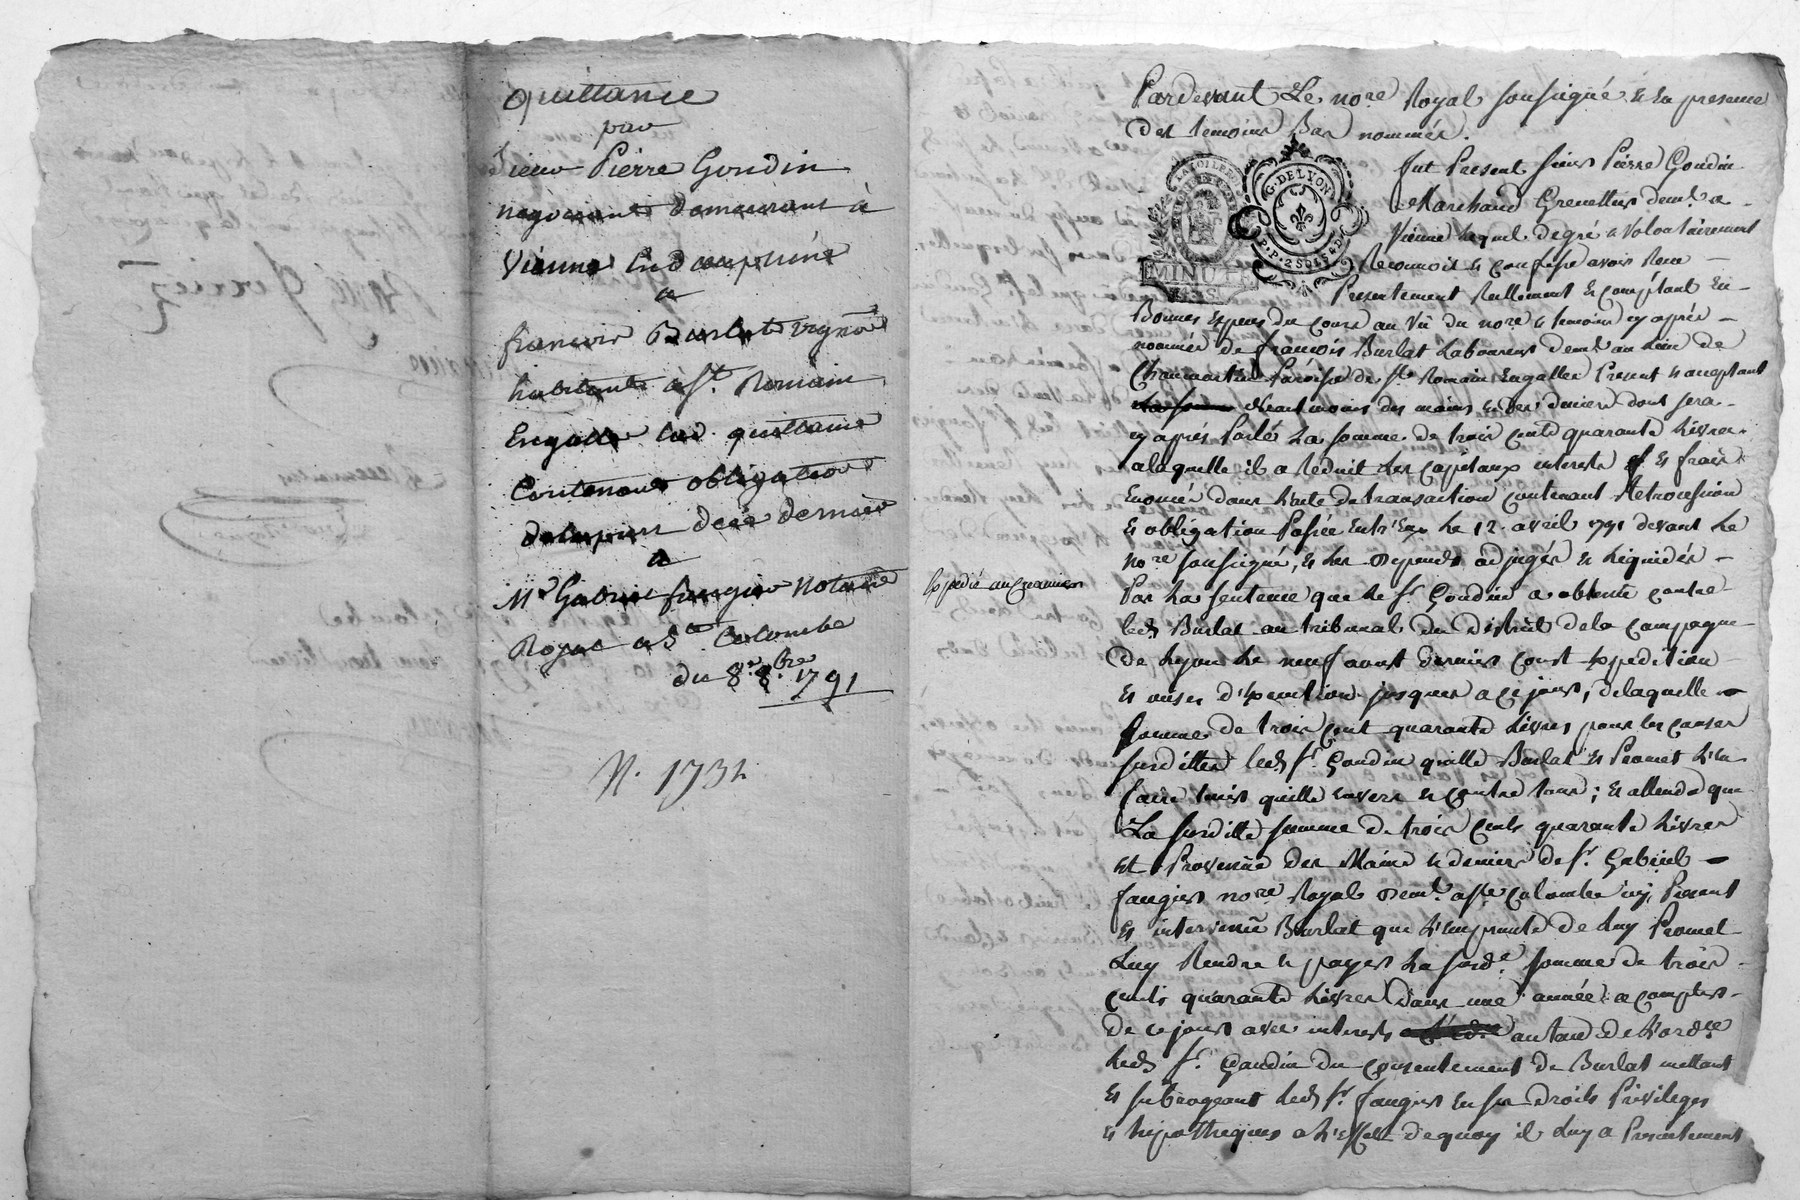 Quittance
par
Sieur Pierre Goudin
négociant demeurant à
Vienne en dauphiné
a
francois Burlat vigneron
habitant a St. Romain
Engalle lad. quittance
Contenant obligation
a
Me Gabriel faugier Notaire
Royal a Ste Colombe
du 8.e 8.bre 1791
N. 1731
Expedié au Creancier
Pardevant Le no.re Royal soussigné & en presence
des temoins Bas nommés.
G. DE LYON
P.P. 2 SOLS 4 D.
MINUT
fut Present sieur Pierre Goudin
Marchand Grenettier demt. a
Vienne lequel de gré & Volontairement
Reconnoit & confesse avoir Recu
Presentement Reellement & comptant En
Bonnes Especes du Cours au Vû du no.re & temoins cy après
nommés de françois Burlat Laboureur demt. au lieu de
Charmartin Paroisse de St. Romain Engallee Present & acceptant
neantmoins des mains & des deniers dont sera
cy après Parlé La somme de trois cents quarante Livres
a laquelle il a Reduit Les Capitaux interets & frais
Enoncés dans L'acte de transaction contenant Retrocession
& obligation Passée Entr'Eux Le 12 avril 1791 devant Le
no.re soussigné, & Les depends adjugés & Liquidés
Par La sentence que Le Sr. Goudin a obtenue contre
led. Burlat au tribunal du District de la Campagne
de Lyon Le neuf aout dernier cout Expedition
& mises d'Execution jusques a ce jour, de laquelle
somme de trois cent quarante Livres pour les causes
susdittes led. Sr. Goudin quitte Burlat & Promet L'en
faire tenir quitte envers & contre tous; & attendu que
La susditte somme de trois cents quarante Livres
Est Provenüe des Mains & deniers de Sr. Gabriel
faugier no.re Royal demt. a Ste. Colombe icy Present
& intervenu Burlat qui L'Emprunte de Luy Promet
Luy Rendre & payer La susd.e somme de trois
cents quarante Livres dans une année a compter
de ce jour avec interets au taux de L'ord.ce
Led. Sr. Goudin du consentement de Burlat mettant
& subrogeant led. Sr. faugier En ses droits Privileges
& hypotheques a L'Effet de quoy il Luy a Presentement